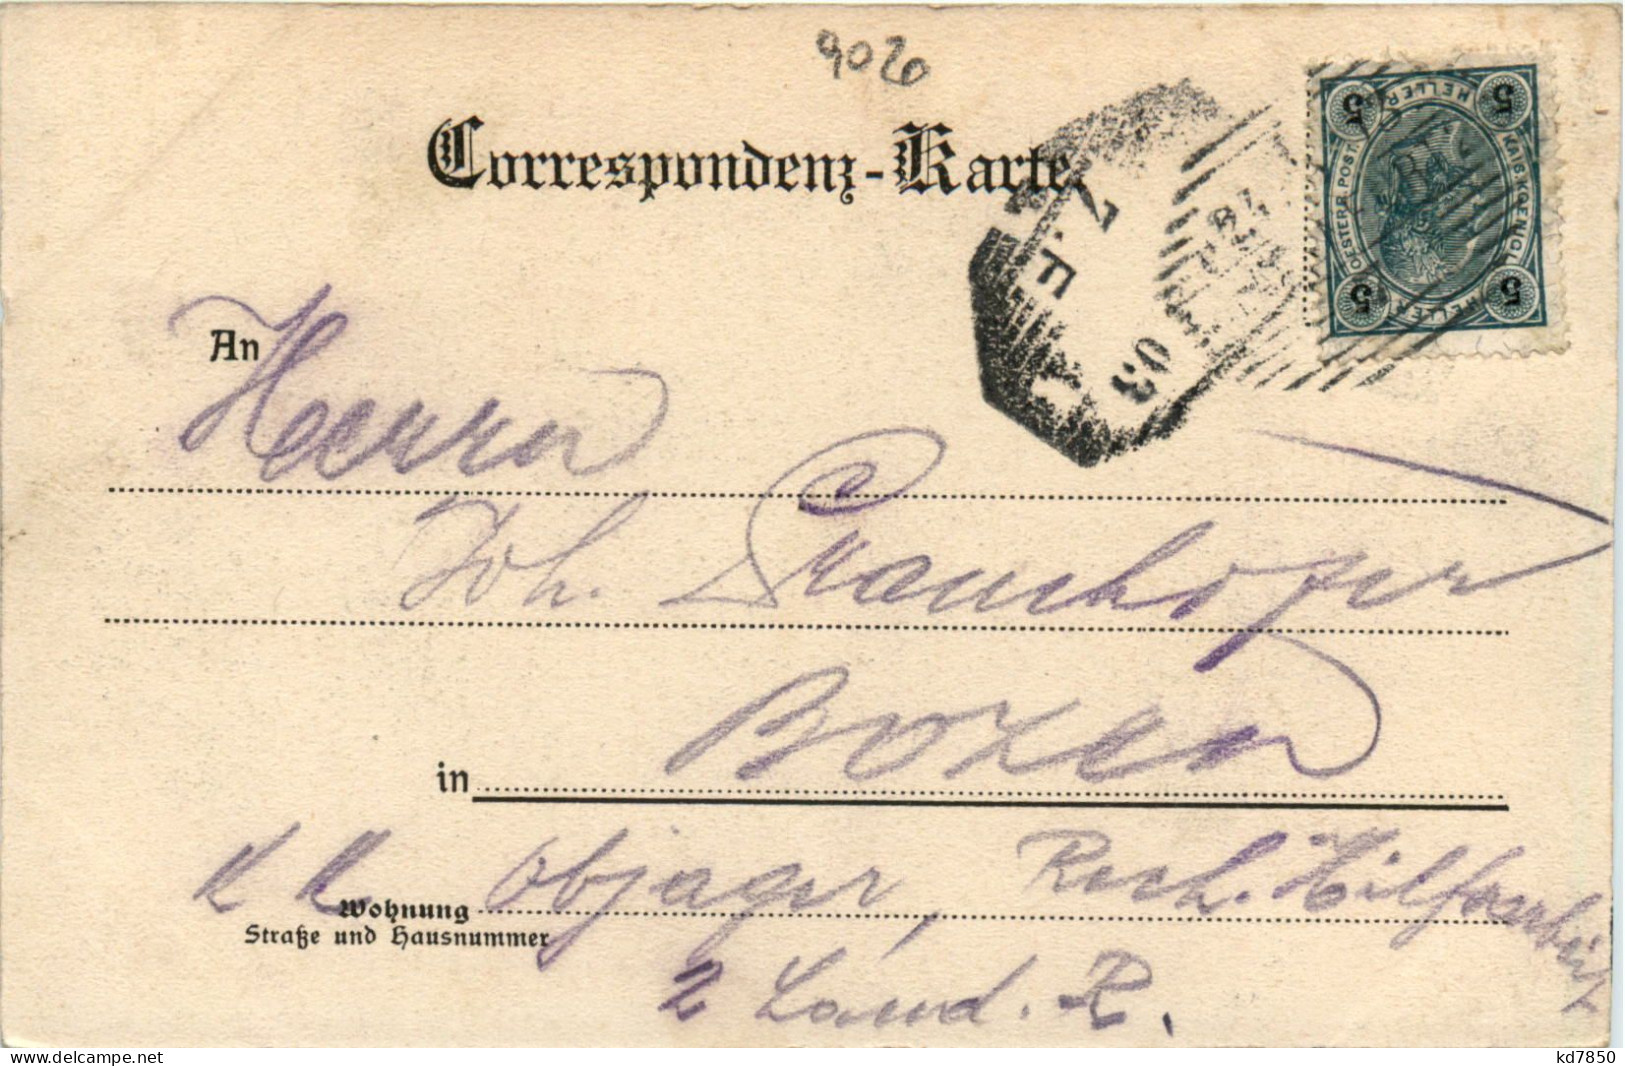 9026
Correspondenz-Karte.
5 HELLER 5
KAIS. KOENIGL.
OESTERR. POST.
5 HELLER 5
03
An Herrn
Joh. Prauchofer
in Bozen
K K Objager, Rech. Hilfsarbeit
Wohnung
Straße und Hausnummer
2 Land. R.
delcampe.net
kd7850